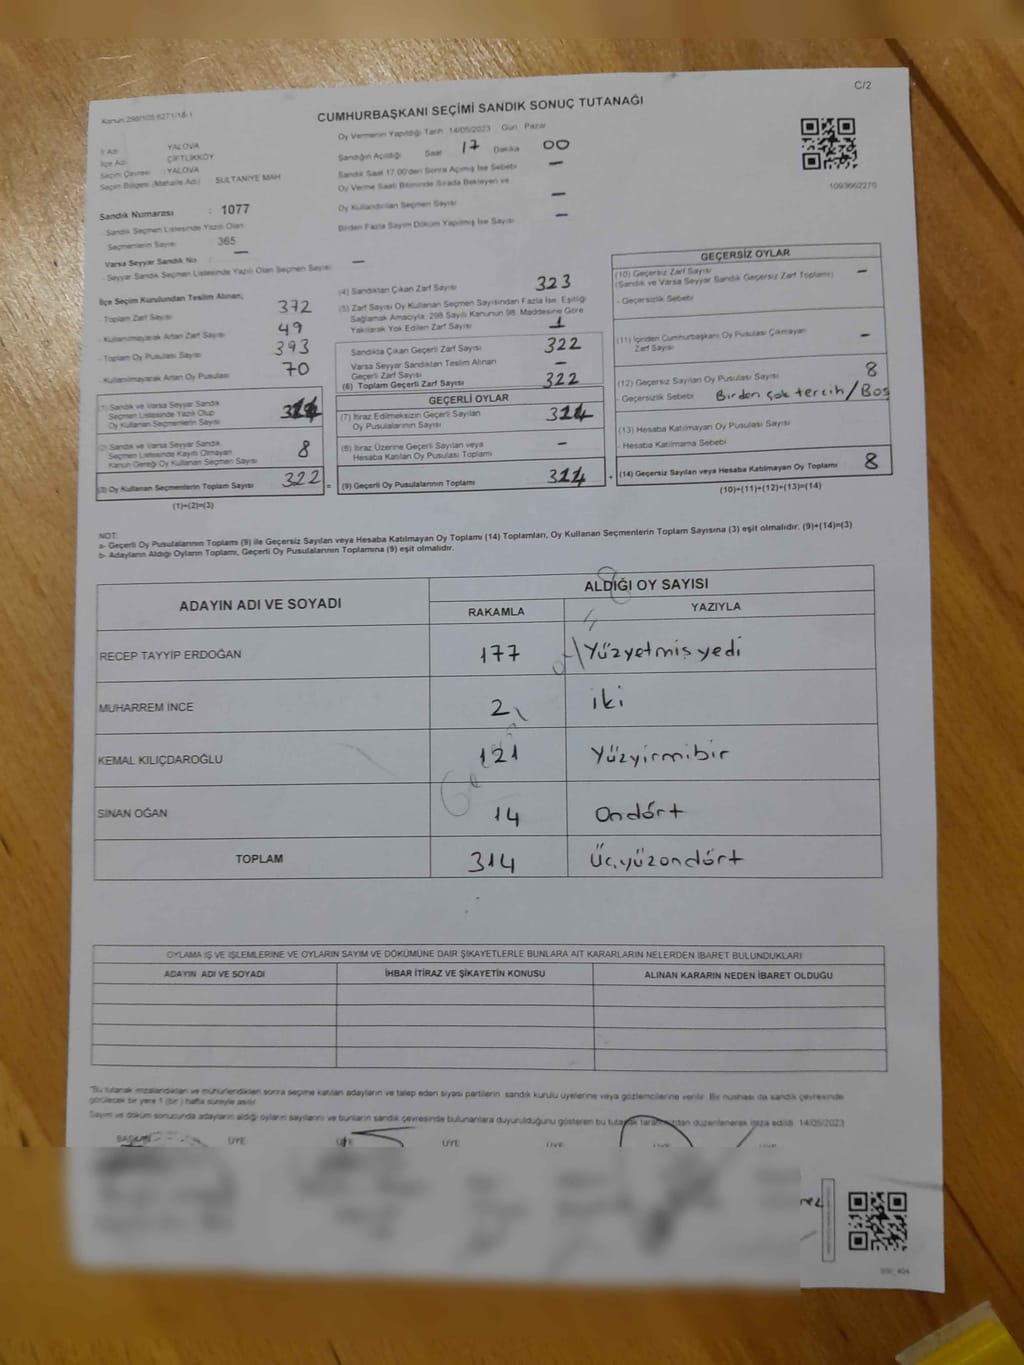 C/2
Kanun 298/105 6271/18-1
CUMHURBAŞKANI SEÇİMİ SANDIK SONUÇ TUTANAĞI
Oy Vermenin Yapıldığı Tarih 14/05/2023 Gün Pazar
İl Adı YALOVA
İlçe Adı ÇİFTLİKKÖY
Seçim Çevresi : YALOVA
Seçim Bölgesi (Mahalle Adı) SULTANİYE MAH
Sandık Numarası : 1077
Sandık Seçmen Listesinde Yazılı Olan
Seçmenlerin Sayısı 365
Varsa Seyyar Sandık No : —
Seyyar Sandık Seçmen Listesinde Yazılı Olan Seçmen Sayısı —
Sandığın Açıldığı Saat 17 Dakika 00
Sandık Saat 17.00'den Sonra Açılmış İse Sebebi —
Oy Verme Saati Bitiminde Sırada Bekleyen ve
Oy Kullandırılan Seçmen Sayısı —
Birden Fazla Sayım Döküm Yapılmış İse Sayısı —
1093662270
İlçe Seçim Kurulundan Teslim Alınan;
Toplam Zarf Sayısı 372
- Kullanılmayarak Artan Zarf Sayısı 49
- Toplam Oy Pusulası Sayısı 393
- Kullanılmayarak Artan Oy Pusulası 70
(1) Sandık ve Varsa Seyyar Sandık
Seçmen Listesinde Yazılı Olup
Oy Kullanan Seçmenlerin Sayısı 314
(2) Sandık ve Varsa Seyyar Sandık
Seçmen Listesinde Kayıtlı Olmayan
Kanun Gereği Oy Kullanan Seçmen Sayısı 8
(3) Oy Kullanan Seçmenlerin Toplam Sayısı 322 =
(1)+(2)=(3)
(4) Sandıktan Çıkan Zarf Sayısı 323
(5) Zarf Sayısı Oy Kullanan Seçmen Sayısından Fazla İse, Eşitliği
Sağlamak Amacıyla, 298 Sayılı Kanunun 98. Maddesine Göre
Yakılarak Yok Edilen Zarf Sayısı 1
Sandıkta Çıkan Geçerli Zarf Sayısı 322
Varsa Seyyar Sandıktan Teslim Alınan
Geçerli Zarf Sayısı —
(6) Toplam Geçerli Zarf Sayısı 322
GEÇERLİ OYLAR
(7) İtiraz Edilmeksizin Geçerli Sayılan
Oy Pusulalarının Sayısı 314
(8) İtiraz Üzerine Geçerli Sayılan veya
Hesaba Katılan Oy Pusulası Toplamı -
(9) Geçerli Oy Pusulalarının Toplamı 314 +
GEÇERSİZ OYLAR
(10) Geçersiz Zarf Sayısı
(Sandık ve Varsa Seyyar Sandık Geçersiz Zarf Toplamı) —
- Geçersizlik Sebebi
(11) İçinden Cumhurbaşkanı Oy Pusulası Çıkmayan
Zarf Sayısı -
(12) Geçersiz Sayılan Oy Pusulası Sayısı 8
- Geçersizlik Sebebi Birden çok tercih/Boş
(13) Hesaba Katılmayan Oy Pusulası Sayısı
- Hesaba Katılmama Sebebi
(14) Geçersiz Sayılan veya Hesaba Katılmayan Oy Toplamı 8
(10)+(11)+(12)+(13)=(14)
NOT:
a- Geçerli Oy Pusulalarının Toplamı (9) ile Geçersiz Sayılan veya Hesaba Katılmayan Oy Toplamı (14) Toplamları, Oy Kullanan Seçmenlerin Toplam Sayısına (3) eşit olmalıdır. (9)+(14)=(3)
b- Adayların Aldığı Oyların Toplamı, Geçerli Oy Pusulalarının Toplamına (9) eşit olmalıdır.
ADAYIN ADI VE SOYADI ALDIĞI OY SAYISI
RAKAMLA YAZIYLA
RECEP TAYYİP ERDOĞAN 177 Yüzyetmişyedi
MUHARREM İNCE 2 iki
KEMAL KILIÇDAROĞLU 121 Yüzyirmibir
SİNAN OĞAN 14 Ondört
TOPLAM 314 Üçyüzondört
OYLAMA İŞ VE İŞLEMLERİNE VE OYLARIN SAYIM VE DÖKÜMÜNE DAİR ŞİKAYETLERLE BUNLARA AİT KARARLARIN NELERDEN İBARET BULUNDUKLARI
ADAYIN ADI VE SOYADI İHBAR İTİRAZ VE ŞİKAYETİN KONUSU ALINAN KARARIN NEDEN İBARET OLDUĞU
"Bu tutanak imzalandıktan ve mühürlendikten sonra seçime katılan adayların ve talep eden siyasi partilerin sandık kurulu üyelerine veya gözlemcilerine verilir. Bir nüshası da sandık çevresinde
görülecek bir yere 1 (bir) hafta süreyle asılır.
Sayım ve döküm sonucunda adayların aldığı oyların sayılarını ve bunların sandık çevresinde bulunanlara duyurulduğunu gösteren bu tutanak tarafımızdan düzenlenerek imza edildi. 14/05/2023
BAŞKAN ÜYE ÜYE ÜYE ÜYE